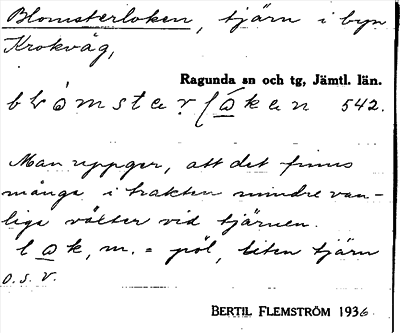 Blomsterloken, tjärn i byn
Krokvåg,
Ragunda sn och tg, Jämtl. län.
542.
Man uppger, att det finns
många i trakten mindre van-
liga växter vid tjärnen.
m. = pöl, liten tjärn
o.s.v.
BERTIL FLEMSTRÖM 1936.